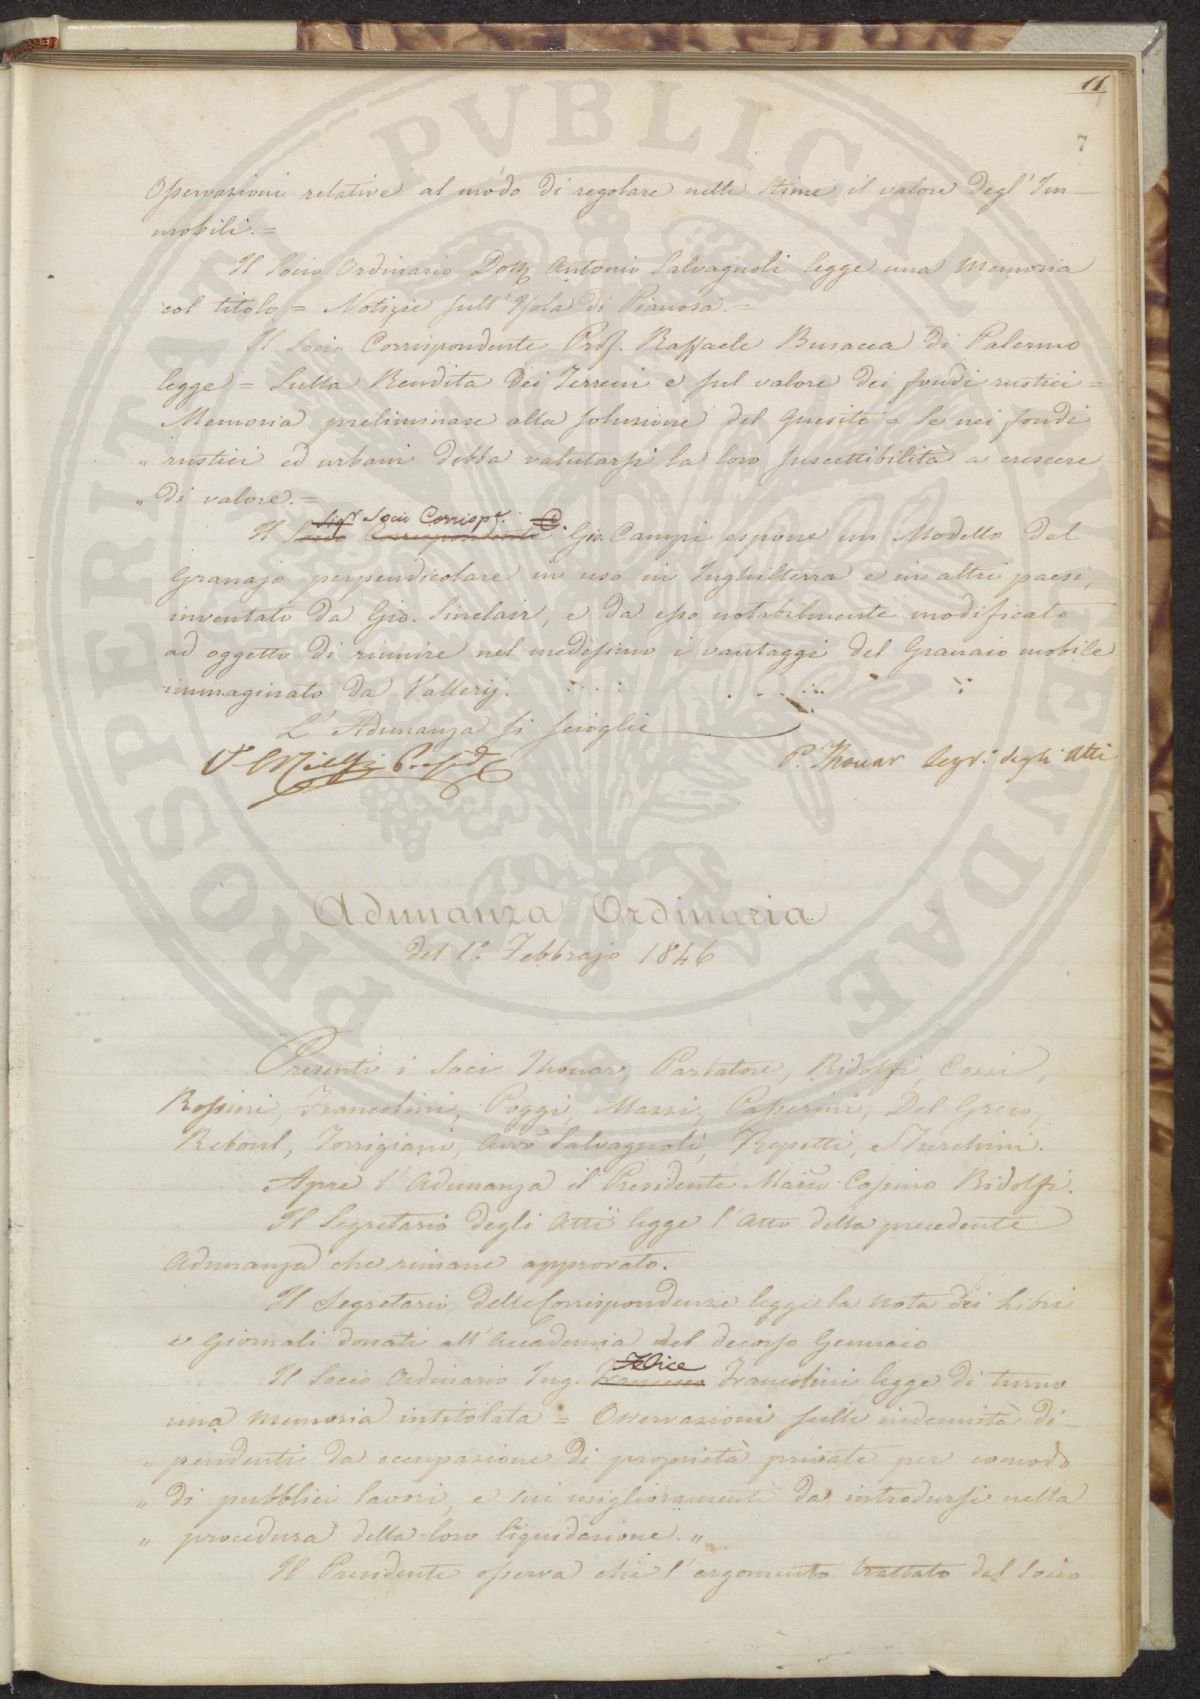 11
7
Osservazioni relative al modo di regolare nelle Stime il valore degl'Im-
mobili.=
Il Socio Ordinario Dott. Antonio Salvagnoli legge una Memoria
col titolo = Notizie sull'Isola di Pianosa.=
Il Socio Corrispondente Prof. Raffaele Busacca di Palermo
legge = Sulla Rendita dei Terreni e sul valore dei fondi rustici =
Memoria preliminare alla soluzione del Quesito = Se nei fondi
" rustici ed urbani debba valutarsi la loro suscettibilità a crescere
" di valore.=
Sigr. Socio Corrispe.
Il Socio Corrispondente Gio. Campi espone un Modello del
Granajo perpendicolare in uso in Inghilterra e in altri paesi,
inventato da Gio. Sinclair, e da esso notabilmente modificato
ad oggetto di riunire nel medesimo i vantaggi del Granaio mobile
immaginato da Vallerij.
L'Adunanza si scioglie
P. Thouar Segr.o degli Atti
Adunanza Ordinaria
del 1.o Febbrajo 1846
Presenti i Soci Thouar, Parlatore, Ridolfi, Cozzi,
Rossini, Francolini, Poggi, Mazzi, Passerini, Del Greco,
Reboul, Torrigiani, Avv.o Salvagnoli, Repetti, e Turchini.
Apre l'Adunanza il Presidente March. Cosimo Ridolfi.
Il Segretario degli Atti legge l'Atto della precedente
Adunanza che rimane approvato.
Il Segretario delle Corrispondenze legge la nota dei Libri
e Giornali donati all'Accademia del decorso Gennaio
Felice
Il Socio Ordinario Ing. Francesco Francolini legge di turno
una Memoria intitolata = Osservazioni sulle indennità di-
" pendenti da occupazione di proprietà private per comodo
" di pubblici lavori, e sui miglioramenti da introdursi nella
" procedura della loro liquidazione."
Il Presidente osserva che l'argomento trattato dal Socio